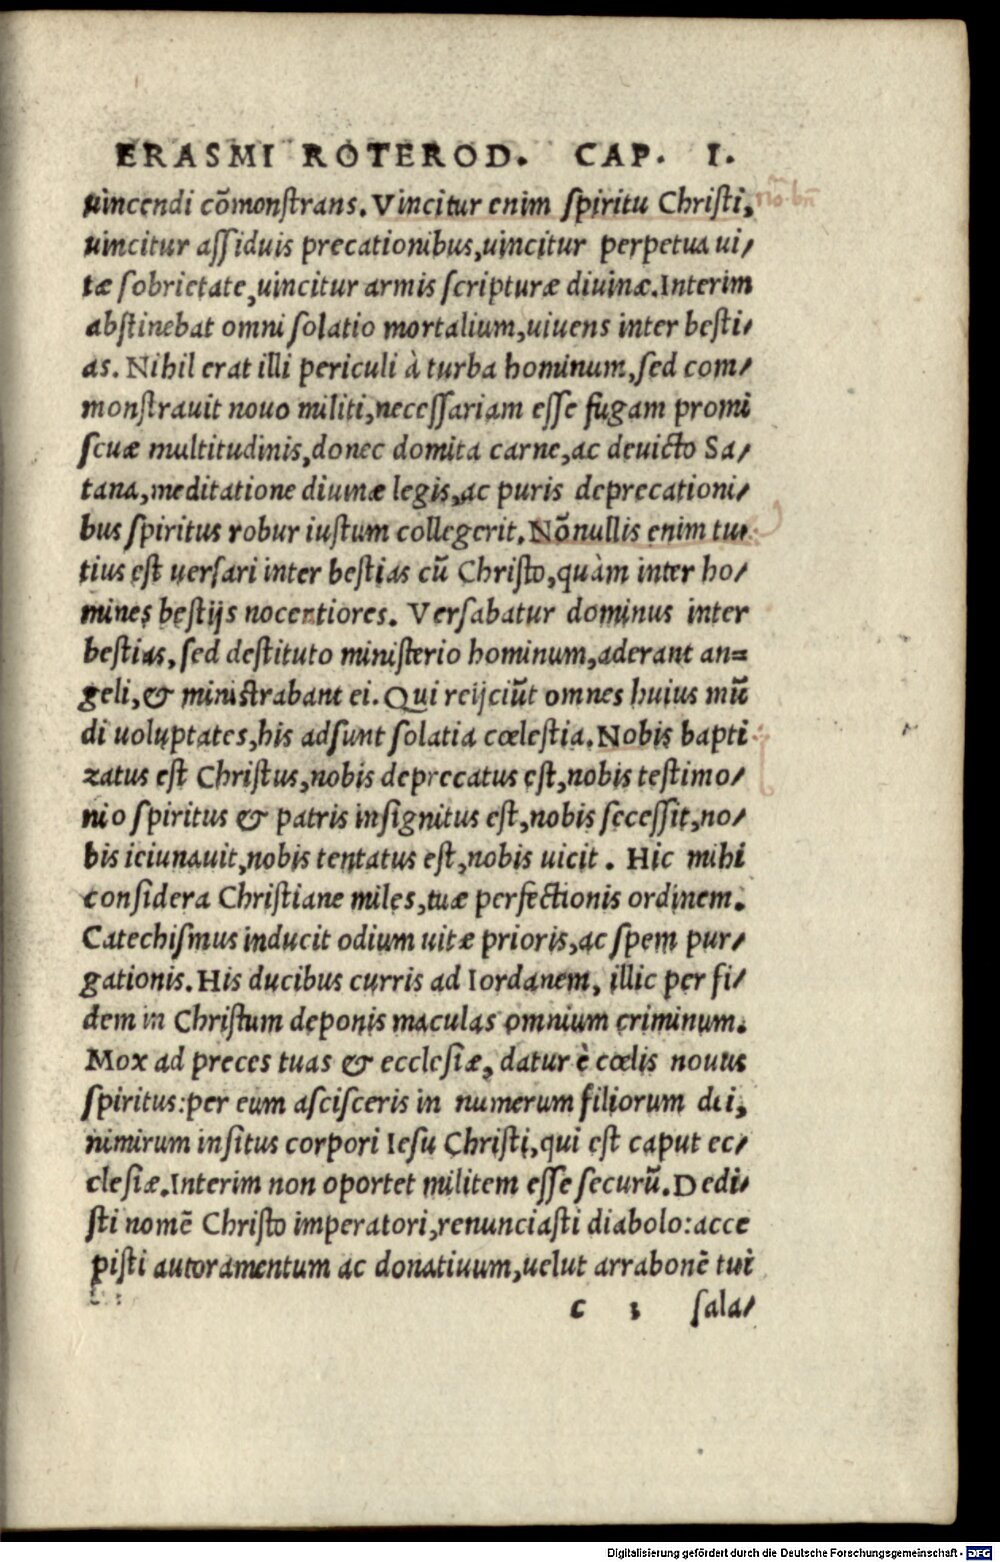 ERASMI ROTEROD. CAP. I.
uincendi cōmonſtrans. Vincitur enim ſpiritu Chriſti,
uincitur aſſiduis precationibus,uincitur perpetua ui/
tæ ſobrietate,uincitur armis ſcripturæ diuinæ.Interim
abſtinebat omni ſolatio mortalium,uiuens inter beſti/
as. Nihil erat illi periculi à turba hominum,ſed com/
monſtrauit nouo militi,neceſſariam eſſe fugam promi
ſcuæ multitudinis,donec domita carne,ac deuicto Sa/
tana,meditatione diuinæ legis,ac puris deprecationi/
bus ſpiritus robur iuſtum collegerit. Nōnullis enim tu/
tius eſt uerſari inter beſtias cū Chriſto,quàm inter ho/
mines beſtijs nocentiores. Verſabatur dominus inter
beſtias, ſed deſtituto miniſterio hominum,aderant an=
geli,& miniſtrabant ei. Qui reijciūt omnes huius mū
di uoluptates,his adſunt ſolatia cœleſtia. Nobis bapti
zatus eſt Chriſtus,nobis deprecatus eſt,nobis teſtimo/
nio ſpiritus & patris inſignitus eſt,nobis ſeceſſit,no/
bis ieiunauit,nobis tentatus eſt,nobis uicit. Hic mihi
conſidera Chriſtiane miles,tuæ perfectionis ordinem.
Catechiſmus inducit odium uitæ prioris,ac ſpem pur/
gationis. His ducibus curris ad Iordanem, illic per fi/
dem in Chriſtum deponis maculas omnium criminum.
Mox ad preces tuas & eccleſiæ, datur è cœlis nouus
ſpiritus:per eum aſciſceris in numerum filiorum dei,
nimirum inſitus corpori Ieſu Chriſti,qui eſt caput ec/
cleſiæ.Interim non oportet militem eſſe ſecurū.Dedi/
ſti nomē Chriſto imperatori,renunciaſti diabolo:acce
piſti autoramentum ac donatiuum,uelut arrabonē tui
c 3 ſala/
Digitalisierung gefördert durch die Deutsche Forschungsgemeinschaft - DFG